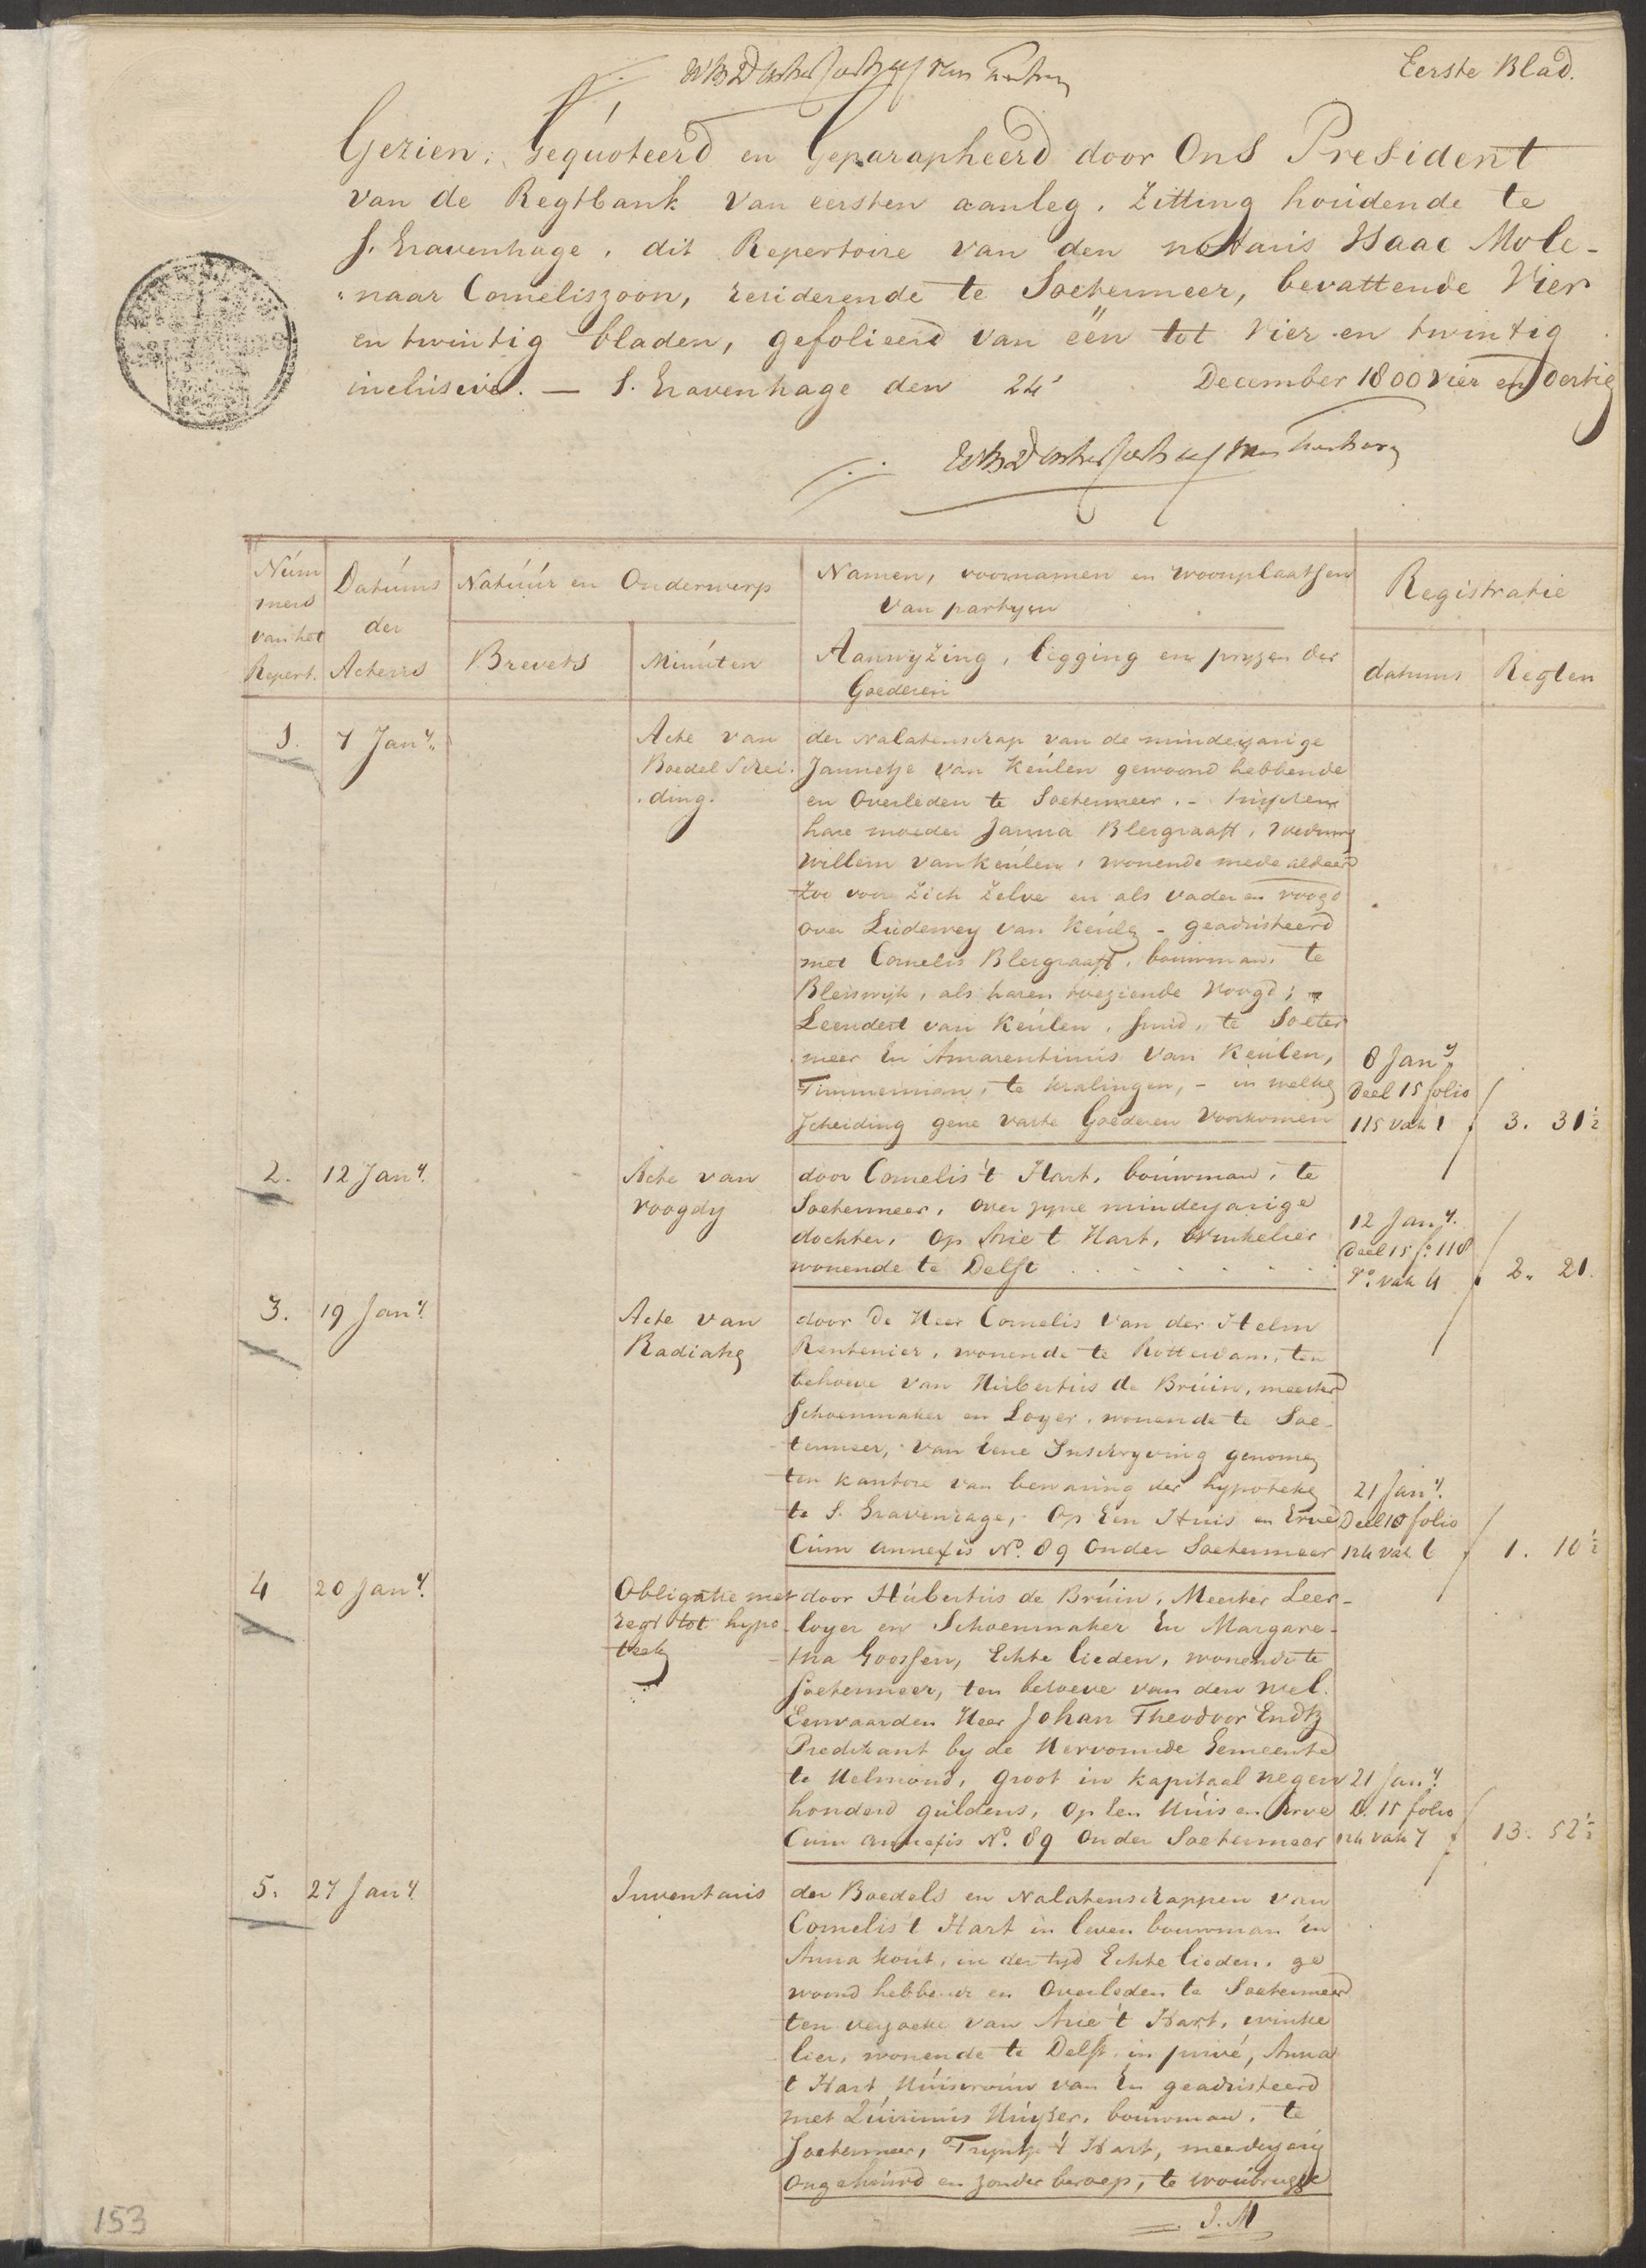 Eerste Blad.
Gezien, Gequoteerd en Geparapheerd door Ons President
van de Regtbank van eersten aanleg, Zitting houdende te
S. Gravenhage, dit Repertoire van den notaris Isaac Mole-
naar Corneliszoon, residerende te Soetermeer, bevattende Vier
en twintig bladen, gefolieerd van één tot Vier en twintig
inclusive. — S. Gravenhage den 24 December 1800 vier en dertig
Num
mers
van het
Repert.
Datums
der
Actens
Natuur en Onderwerp
Brevets
Minuten
Namen, voornamen en woonplaatsen
van partyen
Aanwyzing, ligging en pryzen der
Goederen
Registratie
datums
Regten
1.
7 Jany.
Acte van
Boedel Schei-
ding.
der Nalatenschap van de minderjarige
Jannetje van Keulen gewoond hebbende
en Overleden te Soetermeer. - tusschen
hare moeder Janna Blesgraaft, Weduwe
Willem van Keulen, wonende mede aldaar
Zoo voor Zich Zelve en als vader en voogd
over Ludewey van Keulen - geadsisteerd
met Cornelis Blesgraaft, bouwman, te
Bleiswyk, als haren toeziende Voogd;
Leendert van Keulen, Smid, te Soeter
meer En Amarentinus van Keulen,
Timmerman, te Kralingen, - in welke
Scheiding gene vaste Goederen voorkomen
8 Jany
Deel 15 folio
115 vak 1
3. 31½
2.
12 Jany.
Acte van
voogdy
door Cornelis 't Hart, bouwman, te
Soetermeer, over zyne minderjarige
dochter, Op Arie t Hart, Winkelier
wonende te Delft . . . . . . .
12 Jany.
Deel 15 fo. 118
vo. vak 4
2. 21.
3.
19 Jany.
Acte van
Radiatie
door De Heer Cornelis van der Helm
Rentenier, wonende te Rotterdam, ten
behoeve van Hubertus de Bruin, meester
Schoenmaker en Loyer, wonende te Soe-
termeer, van Eene Inschryving genomen
ten kantore van bewaring der hypoteken
te S. Gravenhage, Op Een Huis en Erve
Cum annexis No. 89 Onder Soetermeer
21 Jany.
Deel 15 folio
124 vak 6
1. 10½
4
20 Jany.
Obligatie met
regt tot hypo-
teek
door Hubertus de Bruin, Meester Leer-
loyer en Schoenmaker En Margare-
tha Goossen, Echte lieden, wonende te
Soetermeer, ten behoeve van den Wel.
Eerwaarden Heer Johan Theodoor Endtz
Predikant by de Hervormde Gemeente
te Helmond, groot in kapitaal negen
honderd guldens, Op Een Huis en Erve
Cum annexis No. 89 Onder Soetermeer
21 Jany.
D. 15 folio
124 vak 7
13. 52½
5.
27 Jany.
Inventaris
der Boedels en Nalatenschappen van
Cornelis 't Hart in leven bouwman en
Anna Hout, in der tyd Echte lieden, ge
woond hebbende en Overleden te Soetermeer
ten verzoeke van Arie 't Hart, winke
lier, wonende te Delft, in privé, Anna
t Hart Huisvrouw van En geadsisteerd
met Quirinus Huyser, bouwman, te
Soetermeer, Tryntje 't Hart, meerderjarig
Ongehuwd en zonder beroep, te Woubrugge
J. M
153